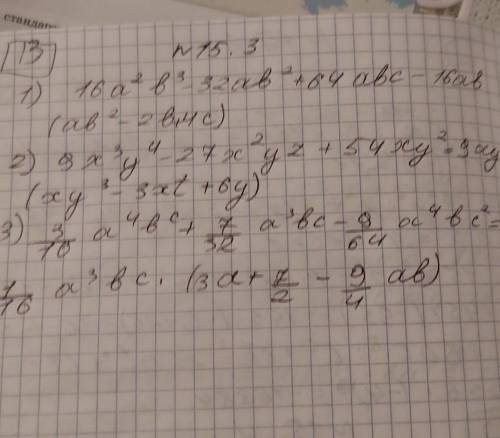 стандар
13 №15.3
1) 16a²b³-32ab²+64abc-16ab
(ab²-2b,4c)
2) 9x³y⁴-27x²yz+54xy²=9xy
(xy³-3xt+6y)
3) 3/16 a⁴b^c+7/32 a³bc-9/64 a⁴bc²=
1/16 a³bc·(3a+7/2-9/4 ab)